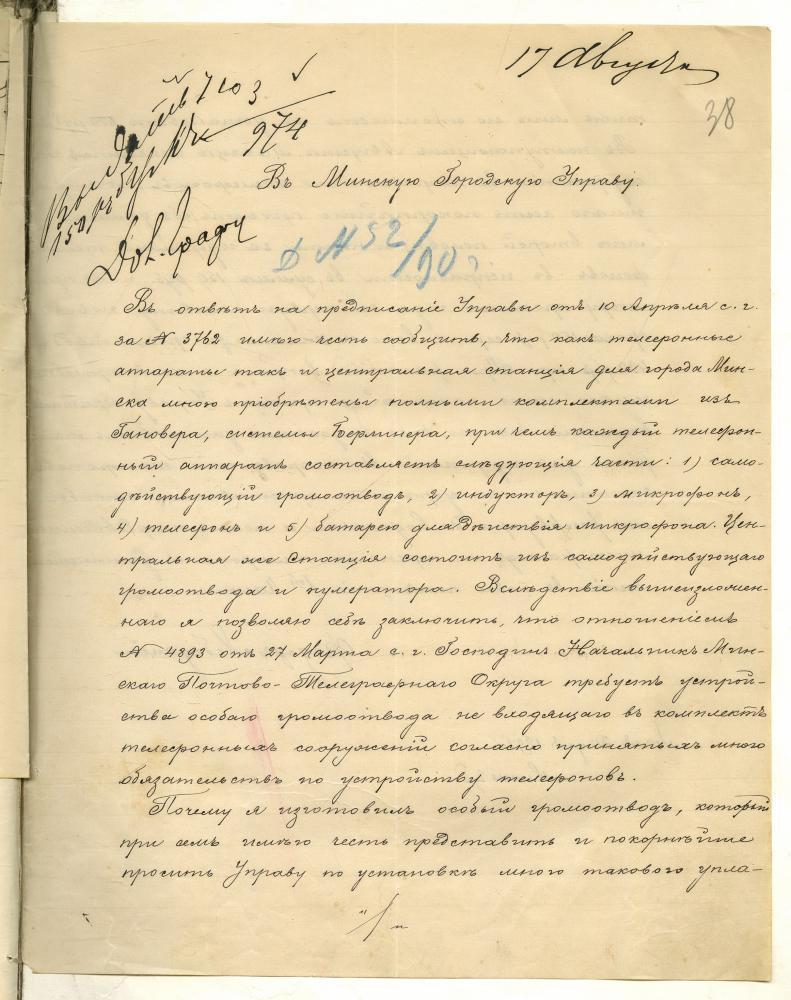 17 Августа
38
№ 7103
974
150 р.
Въ Минскую Городскую Управу.
Д № 52/90 г
Въ отвѣтъ на предписаніе Управы отъ 10 Апрѣля с. г.
за № 3762 имѣю честь сообщить, что какъ телефонные
аппараты такъ и центральная станція для города Мин-
ска мною пріобрѣтены полными комплектами изъ
Гановера, системы Берлинера, при чемъ каждый телефон-
ный аппаратъ составляетъ слѣдующія части: 1) само-
дѣйствующій громоотводъ, 2) индукторъ, 3) микрофонъ,
4) телефонъ и 5) батарею для дѣйствія микрофона. Цен-
тральная же Станція состоитъ изъ самодѣйствующаго
громоотвода и нумератора. Вслѣдствіе вышеизложен-
наго я позволяю себѣ заключить, что отношеніемъ
№ 4893 отъ 27 Марта с. г. Господинъ Начальникъ Мин-
скаго Почтово-Телеграфнаго Округа требуетъ устрой-
ства особаго громоотвода не входящаго въ комплектъ
телефонныхъ сооруженій согласно принятыхъ мною
обязательствъ по устройству телефоновъ.
Почему я изготовилъ особый громоотводъ, который
при семъ имѣю честь представить и покорнѣйше
просить Управу по установкѣ мною таковаго упла-